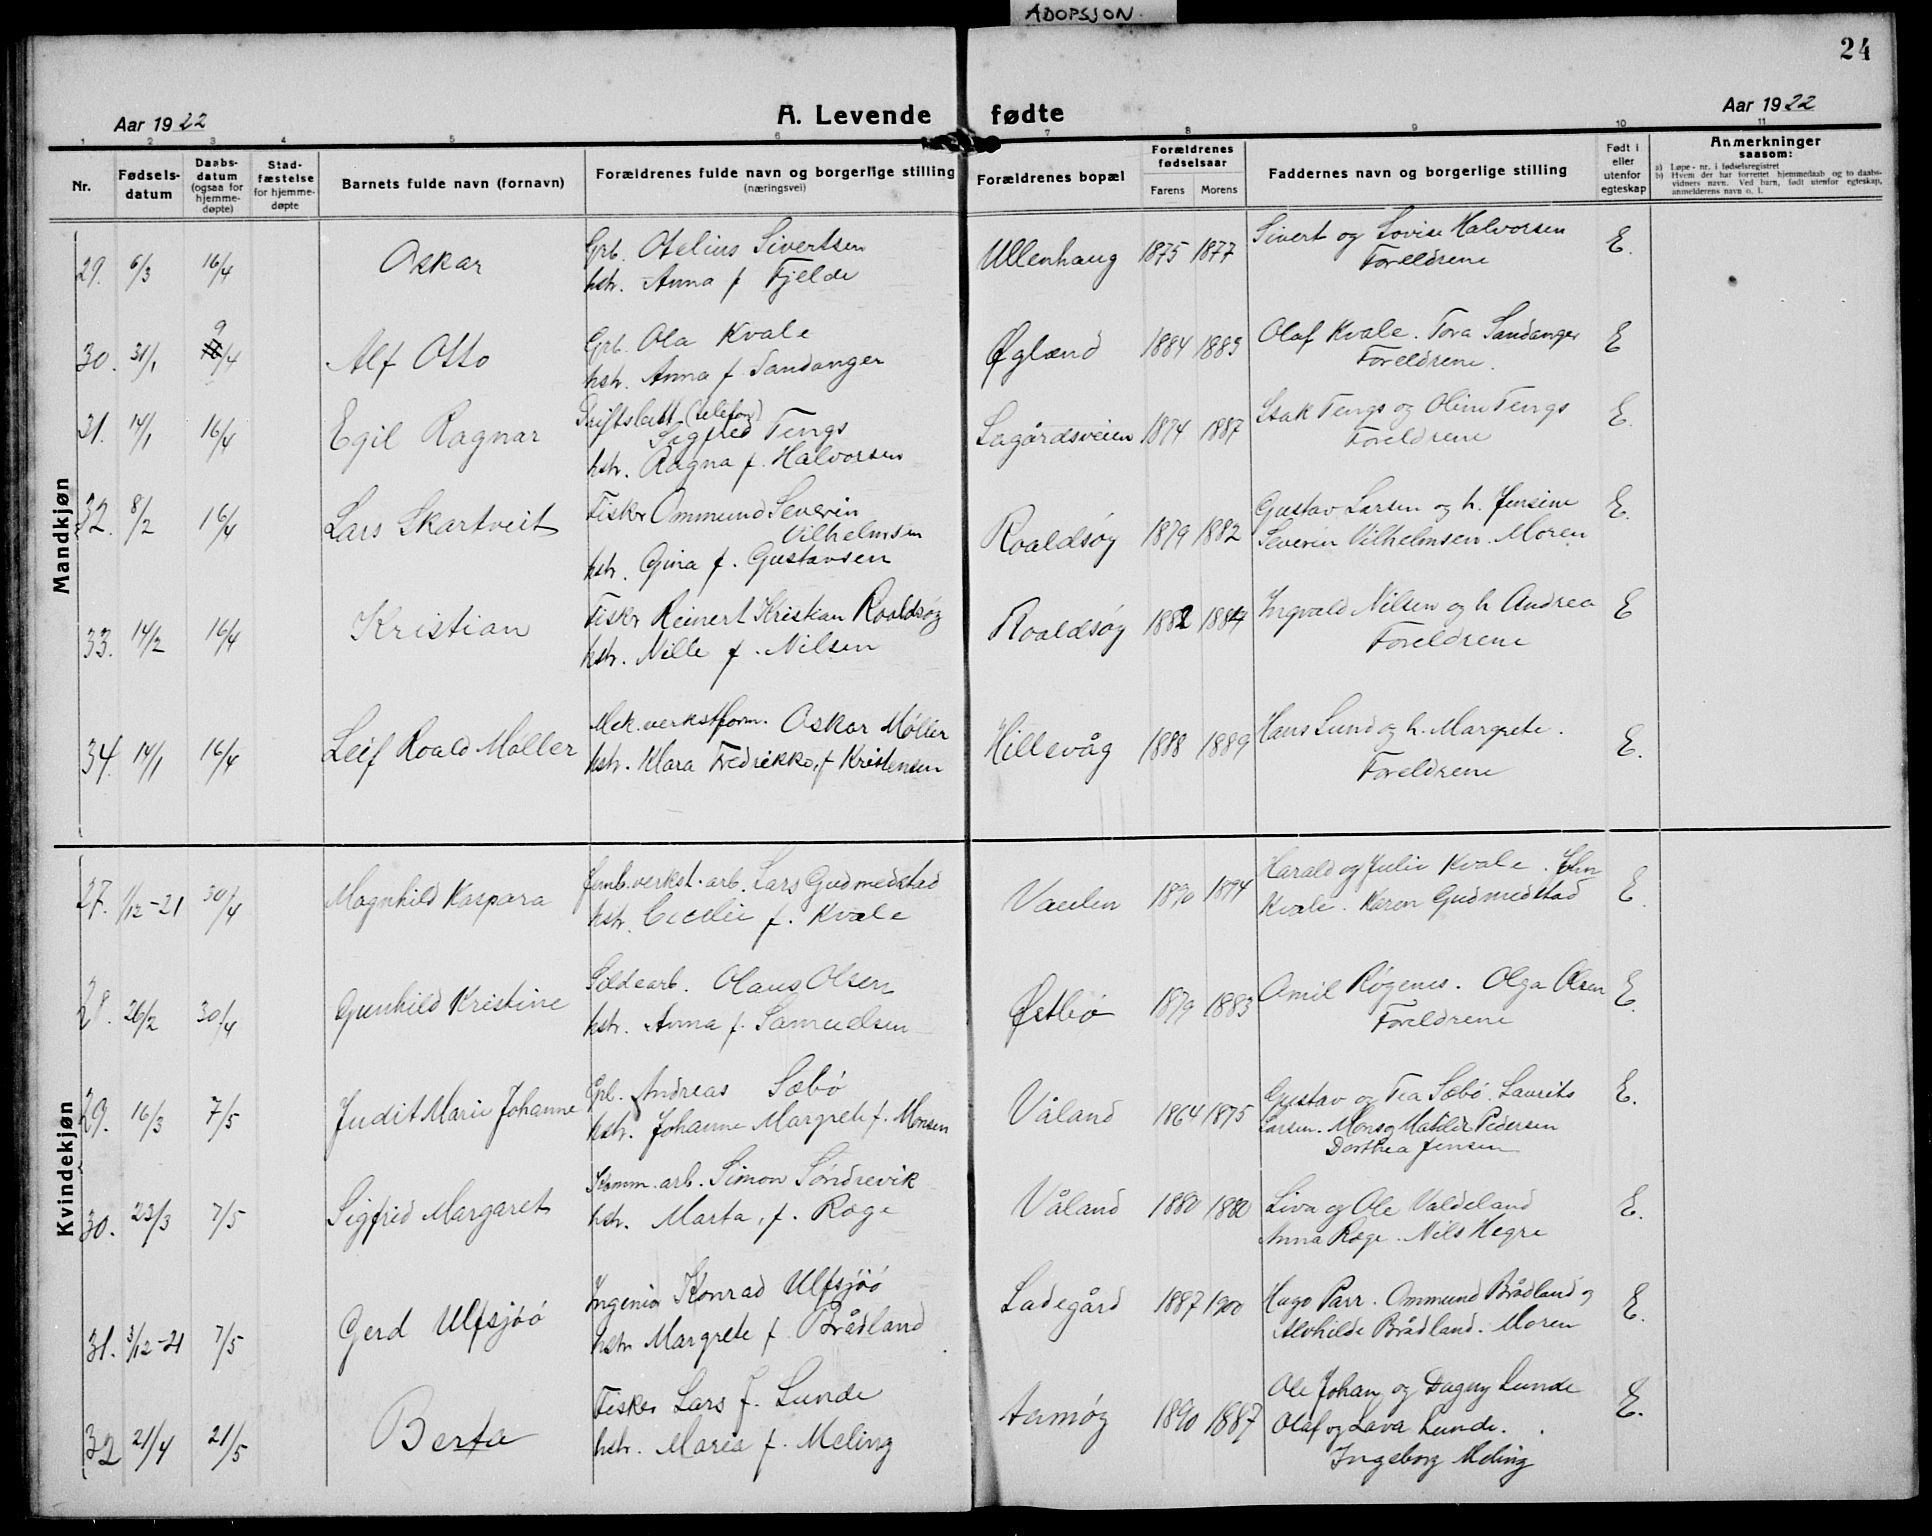 ADOPSJON.
24
Aar 1922
A. Levende fødte
Aar 1922
1 2 3 4 5 6 7 8 9 10 11
Nr.
Fødsels-
datum
Daabs-
datum
(ogsaa for
hjemme-
døpte)
Stad-
fæstelse
for hjemme-
døpte
Barnets fulde navn (fornavn)
Forældrenes fulde navn og borgerlige stilling
(næringsvei)
Forældrenes bopæl
Forældrenes
fødselsaar
Farens Morens
Faddernes navn og borgerlige stilling
Født i
eller
utenfor
egteskap
Anmerkninger
saasom:
a) Løpe-nr. i fødselsregistret
b) Hvem der har forrettet hjemmedaab og to daabs-
vidners navn. Ved barn, født utenfor egteskap,
anmelderens navn o. l.
Mandkjøn
29. 6/3 16/4 Oskar
Grb. Otelius Sivertsen
hstr. Anna f Fjelde
Ullenhaug 1875 1877
Sivert og Lovise Halvorsen
Foreldrene
E.
30. 31/1 9/4 Alf Otto
Grb. Ola Kvale
hstr. Anna f. Sandanger
Øglænd 1884 1885
Olaf Kvale. Tora Sandanger
Foreldrene.
E
31. 14/1 16/4 Egil Ragnar
(telefon)
Sigfred Tengs
hstr. Ragna f. Halvorsen
Lagårdsveien 1874 1887
Isak Tengs og Oline Tengs
Foreldrene
E.
32. 8/2 16/4 Lars Skartveit
Fisker Ommund Severin
Vilhelmsen
hstr. Gina f. Gustavsen
Roaldsøy 1879 1882
Gustav Larsen og h. Jensine
Severin Vilhelmsen. Moren
E.
33. 14/2 16/4 Kristian
Fisker Reinert Kristian Roaldsøy
hstr. Nille f. Nilsen
Roaldsøy 1882 1884
Ingvald Nilsen og h Andrea
Foreldrene
E
34. 14/1 16/4 Leif Roald Møller
Mek.verkstform. Oskar Møller
hstr. Klara Fredrikke, f Kristensen
Hillevåg 1888 1889
Hans Lund og h. Margrete.
Foreldrene
E.
Kvindekjøn
27. 1/12-21 30/4 Magnhild Kaspara
Jernb.verkst.arb. Lars Gudmedstad
hstr. Cecilie f. Kvale
Vaulen 1890 1894
Harald og Julie Kvale. John
Kvale. Karen Gudmedstad
E.
28. 26/2 30/4 Gunhild Kristine
Sildearb. Olaus Olsen
hstr. Anna f. Samuelsen
Østbø 1879 1883
Omil Røgenes. Olga Olsen
Foreldrene
E.
29. 16/3 7/5 Judit Marie Johanne
Grb. Andreas Sæbø
hstr. Johanne Margrete f. Monsen
Våland 1864 1875
Gustav og Tea Sæbø. Laurits
Larsen. Mons og Matilde Pedersen
Dorthea Jensen
E.
30. 23/3 7/5 Sigfred Margaret
Komm. arb. Simon Søndrevik
hstr. Marta, f. Rage
Våland 1880 1880
Liva og Ole Valdeland
Anna Rage. Nils Hegre
E.
31. 3/12-21 7/5 Gerd Ulfsjøö
Ingeniør Konrad Ulfsjøö
hstr Margrete f. Brådland
Ladegård 1887 1900
Hugo Parr. Ommund Brådland og
Alvhilde Brådland. Moren
E.
32 21/4 21/5 Berta
Fisker Lars J. Lunde
hstr. Maria f. Meling
Aamøy 1890 1887
Ole Johan og Dagny Lunde
Olaf og Lava Lunde.
Ingeborg Meling
E.